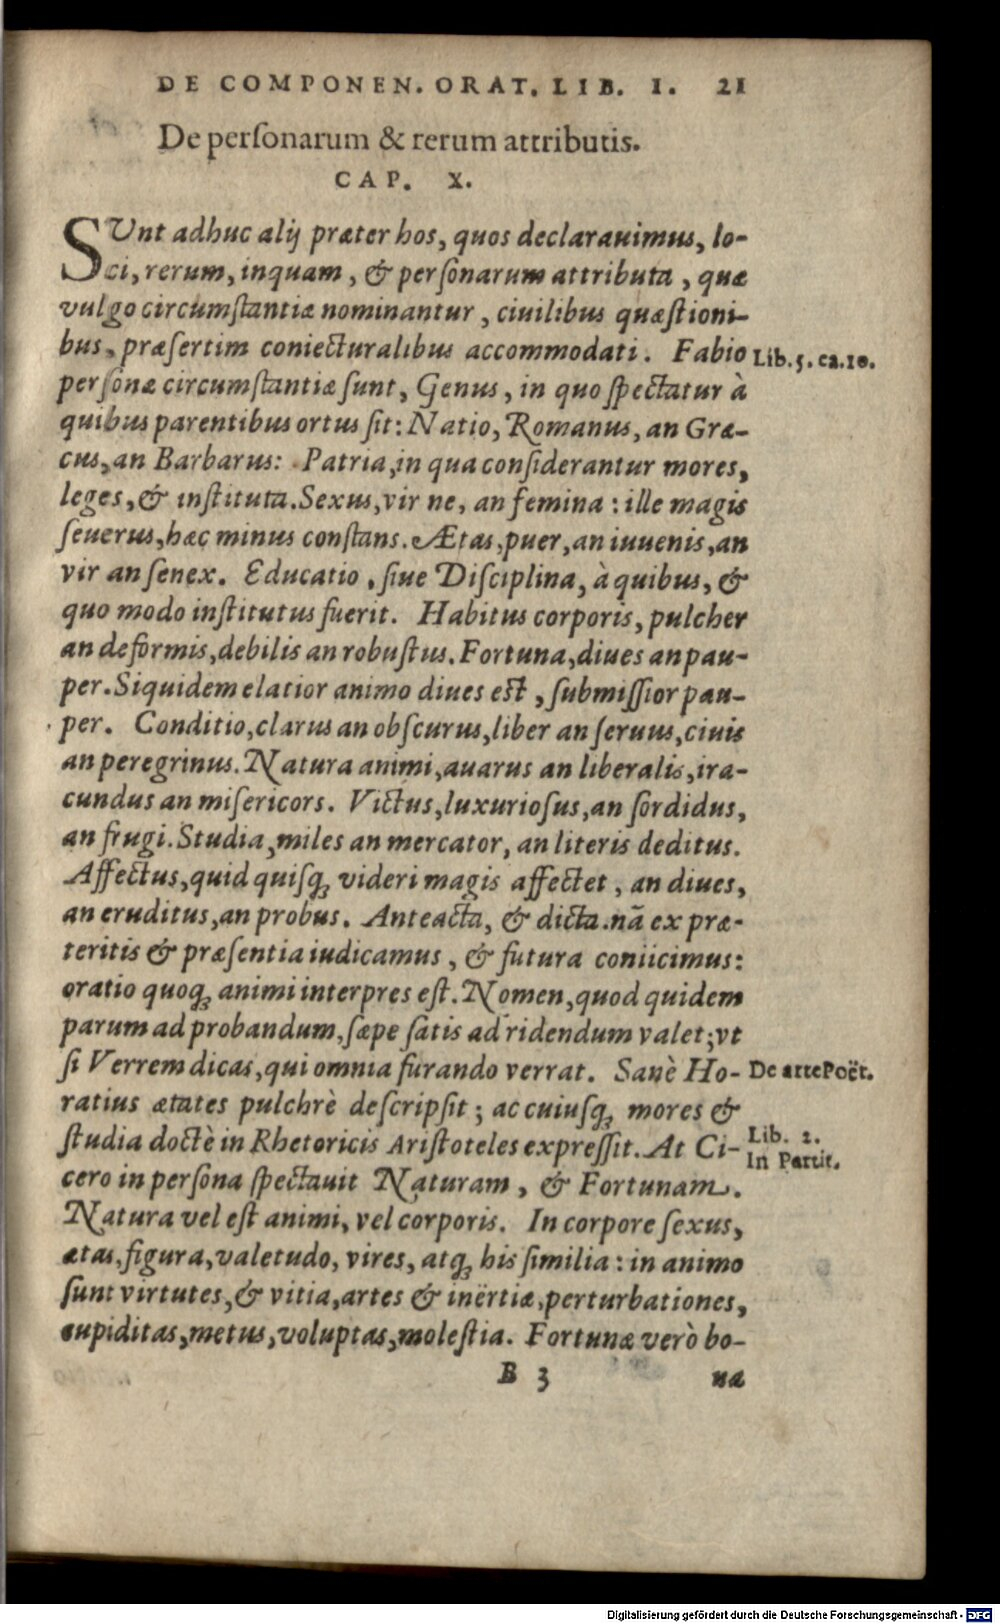 DE COMPONEN. ORAT. LIB. I. 21
De perſonarum & rerum attributis.
CAP. X.
SUnt adhuc alij præter hos, quos declarauimus, lo-
ci, rerum, inquam, & perſonarum attributa, quæ
vulgo circumſtantiæ nominantur, ciuilibus quæſtioni-
bus, præſertim coniecturalibus accommodati. Fabio
Lib. 5. ca. 10.
perſonæ circumſtantiæ ſunt, Genus, in quo ſpectatur à
quibus parentibus ortus ſit: Natio, Romanus, an Græ-
cus, an Barbarus: Patria, in qua conſiderantur mores,
leges, & inſtituta. Sexus, vir ne, an femina: ille magis
ſeuerus, hæc minus conſtans. Ætas, puer, an iuuenis, an
vir an ſenex. Educatio, ſiue Diſciplina, à quibus, &
quo modo inſtitutus fuerit. Habitus corporis, pulcher
an deformis, debilis an robuſtus. Fortuna, diues an pau-
per. Siquidem elatior animo diues eſt, ſubmiſſior pau-
per. Conditio, clarus an obſcurus, liber an ſeruus, ciuis
an peregrinus. Natura animi, auarus an liberalis, ira-
cundus an miſericors. Victus, luxurioſus, an ſordidus,
an frugi. Studia, miles an mercator, an literis deditus.
Affectus, quid quiſqꝫ videri magis affectet, an diues,
an eruditus, an probus. Anteacta, & dicta. nã ex præ-
teritis & præſentia iudicamus, & futura coniicimus:
oratio quoqꝫ animi interpres eſt. Nomen, quod quidem
parum ad probandum, ſæpe ſatis ad ridendum valet; vt
ſi Verrem dicas, qui omnia furando verrat. Sanè Ho-
De arte Poët.
ratius ætates pulchrè deſcripſit; ac cuiuſqꝫ mores &
ſtudia doctè in Rhetoricis Ariſtoteles expreſſit. At Ci-
Lib. 2.
In Partit.
cero in perſona ſpectauit Naturam, & Fortunam.
Natura vel eſt animi, vel corporis. In corpore ſexus,
ætas, figura, valetudo, vires, atqꝫ his ſimilia: in animo
ſunt virtutes, & vitia, artes & inërtiæ, perturbationes,
cupiditas, metus, voluptas, moleſtia. Fortunæ verò bo-
B 3 na
Digitalisierung gefördert durch die Deutsche Forschungsgemeinschaft - DFG